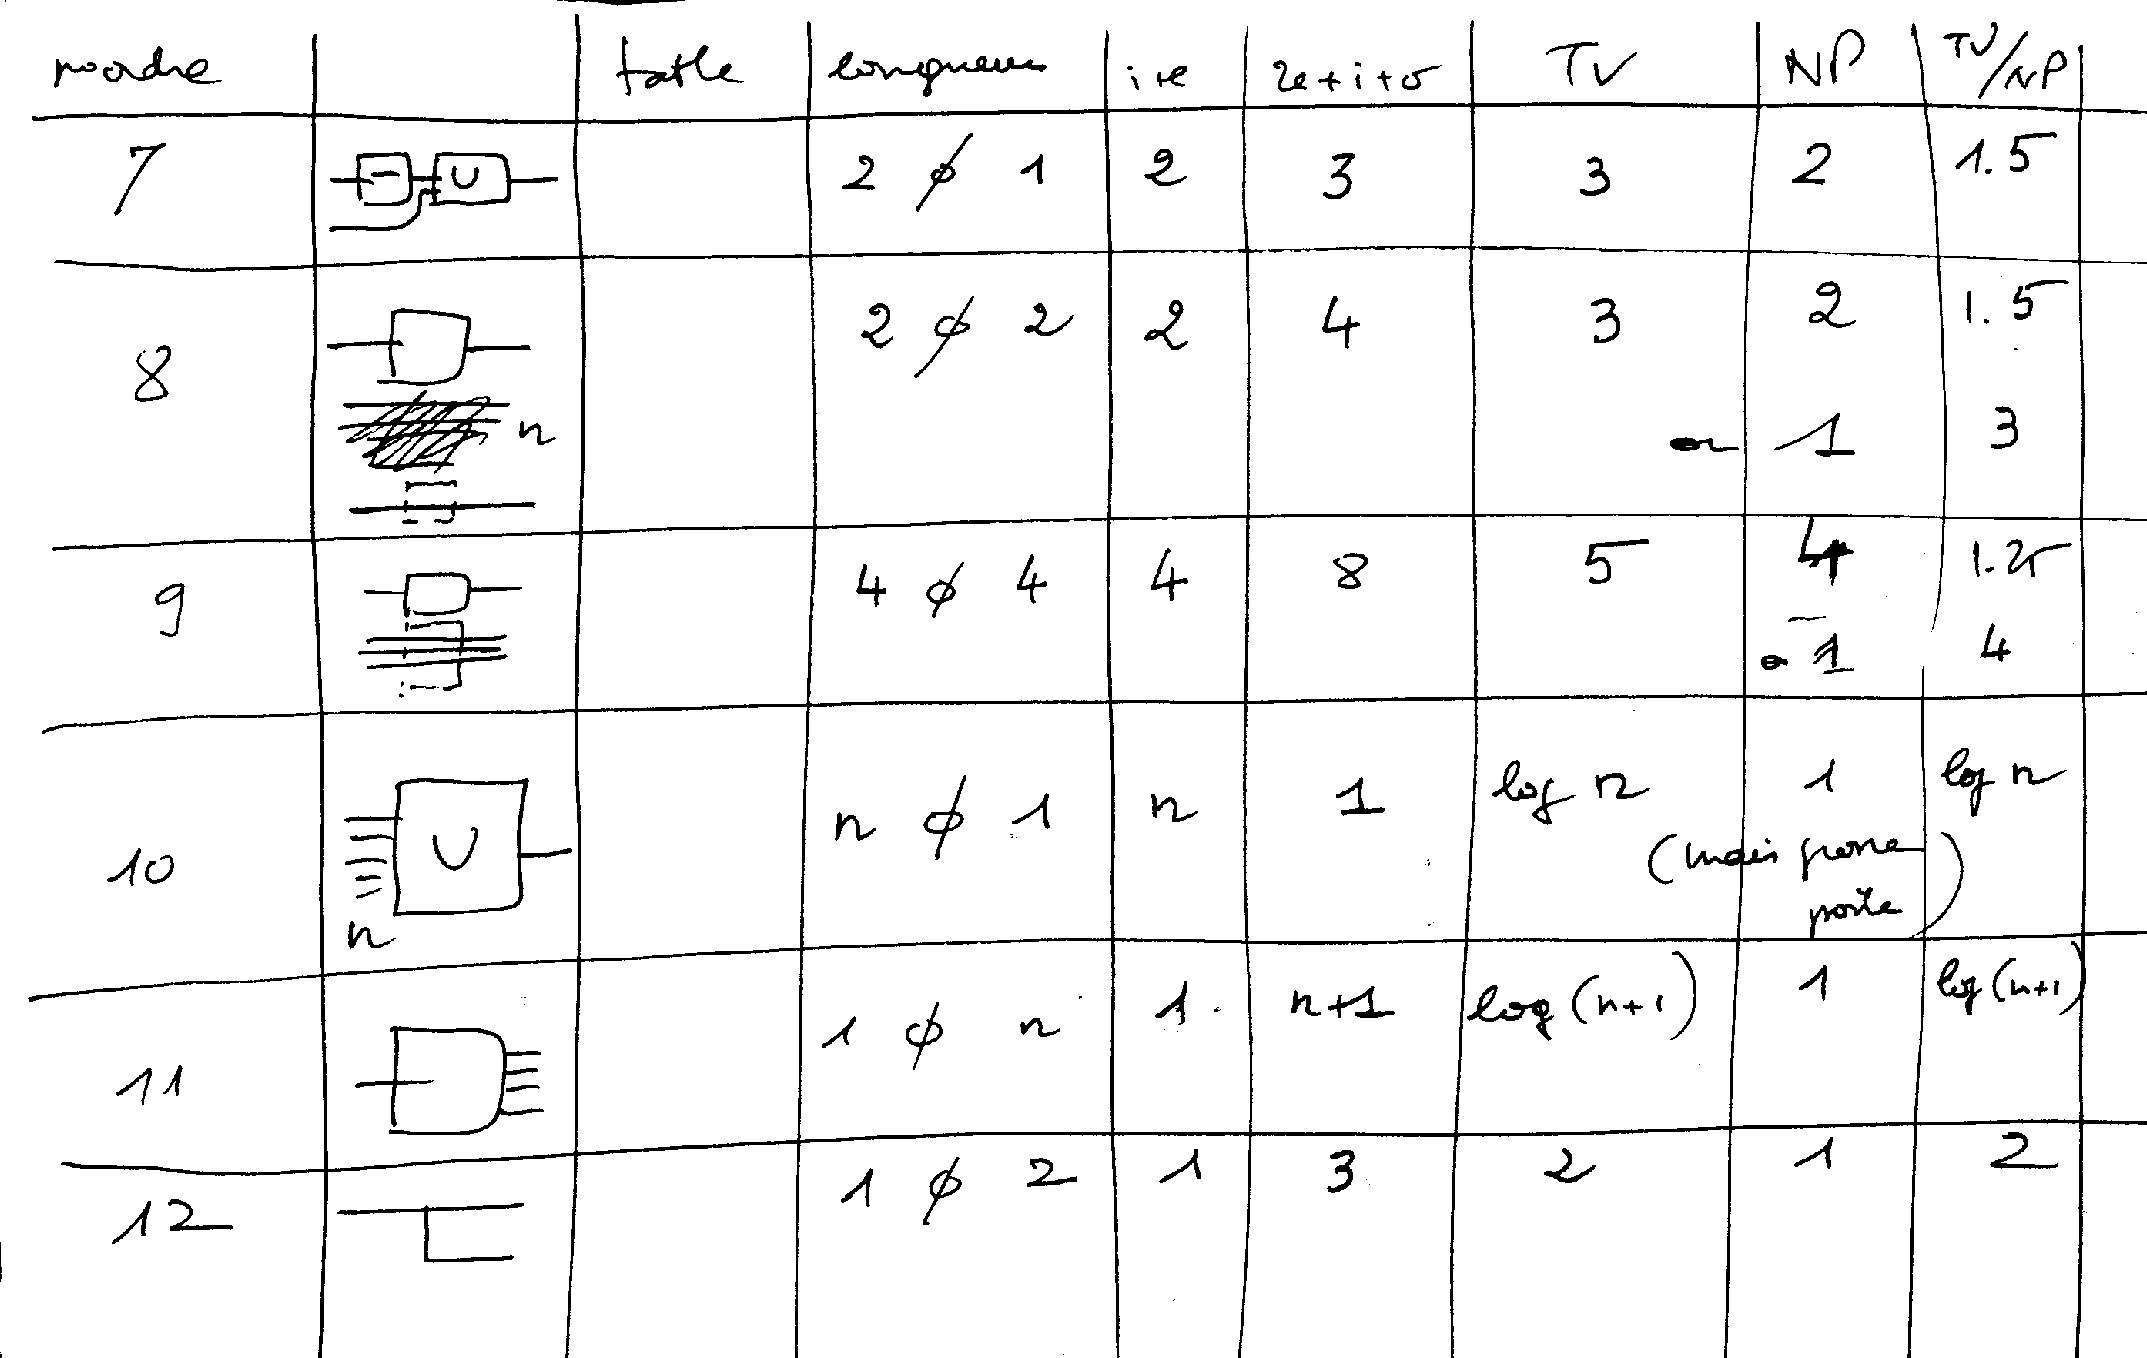 n° ordre table longueur i+e 2e+i+σ TV NP TV/NP
7 − U 2 ∅ 1 2 3 3 2 1.5
8 2 ∅ 2 2 4 3 2 1.5
n ou 1 3
9 4 ∅ 4 4 8 5 4 1.25
ou 1 4
10 U n ∅ 1 n 1 log n 1 log n
n (mais grosse
porte)
11 1 ∅ n 1 n+1 log (n+1) 1 log (n+1)
12 1 ∅ 2 1 3 2 1 2